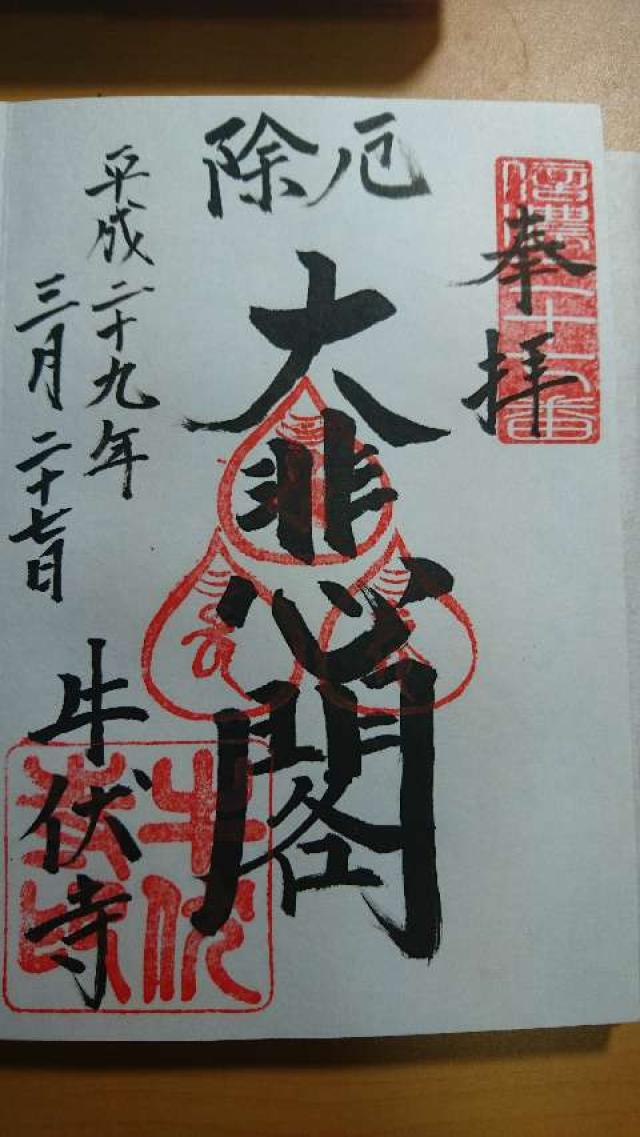 奉拝
信濃二十七番
厄除
大悲閣
平成二十九年
三月二十七日
牛伏寺